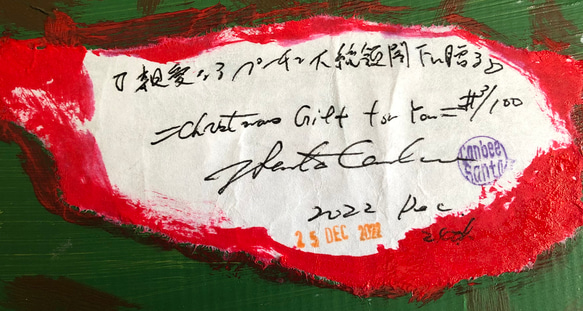 『親愛なるプーチン大統領閣下に贈る』
=Christmas Gift for You= #3/100
Canbee Santa
2022 Dec
25 DEC 2022